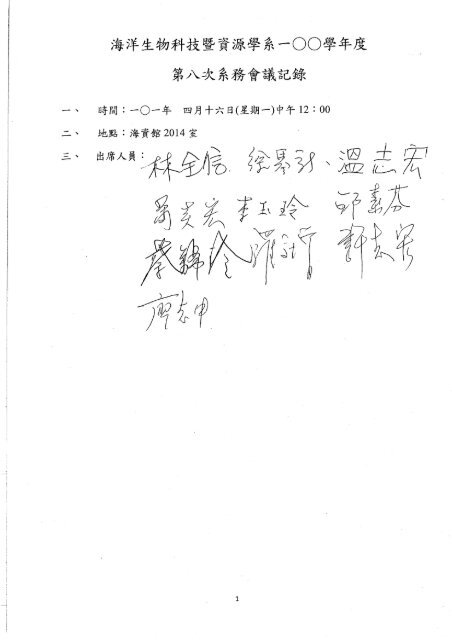 海洋生物科技暨資源學系一○○學年度
第八次系務會議記錄
一、 時間：一○一年 四月十六日(星期一)中午 12：00
二、 地點：海資館 2014 室
三、 出席人員：林全信、徐基新、溫志宏
李玉玲 邱素芬
蔡錦玲
廖志中
1